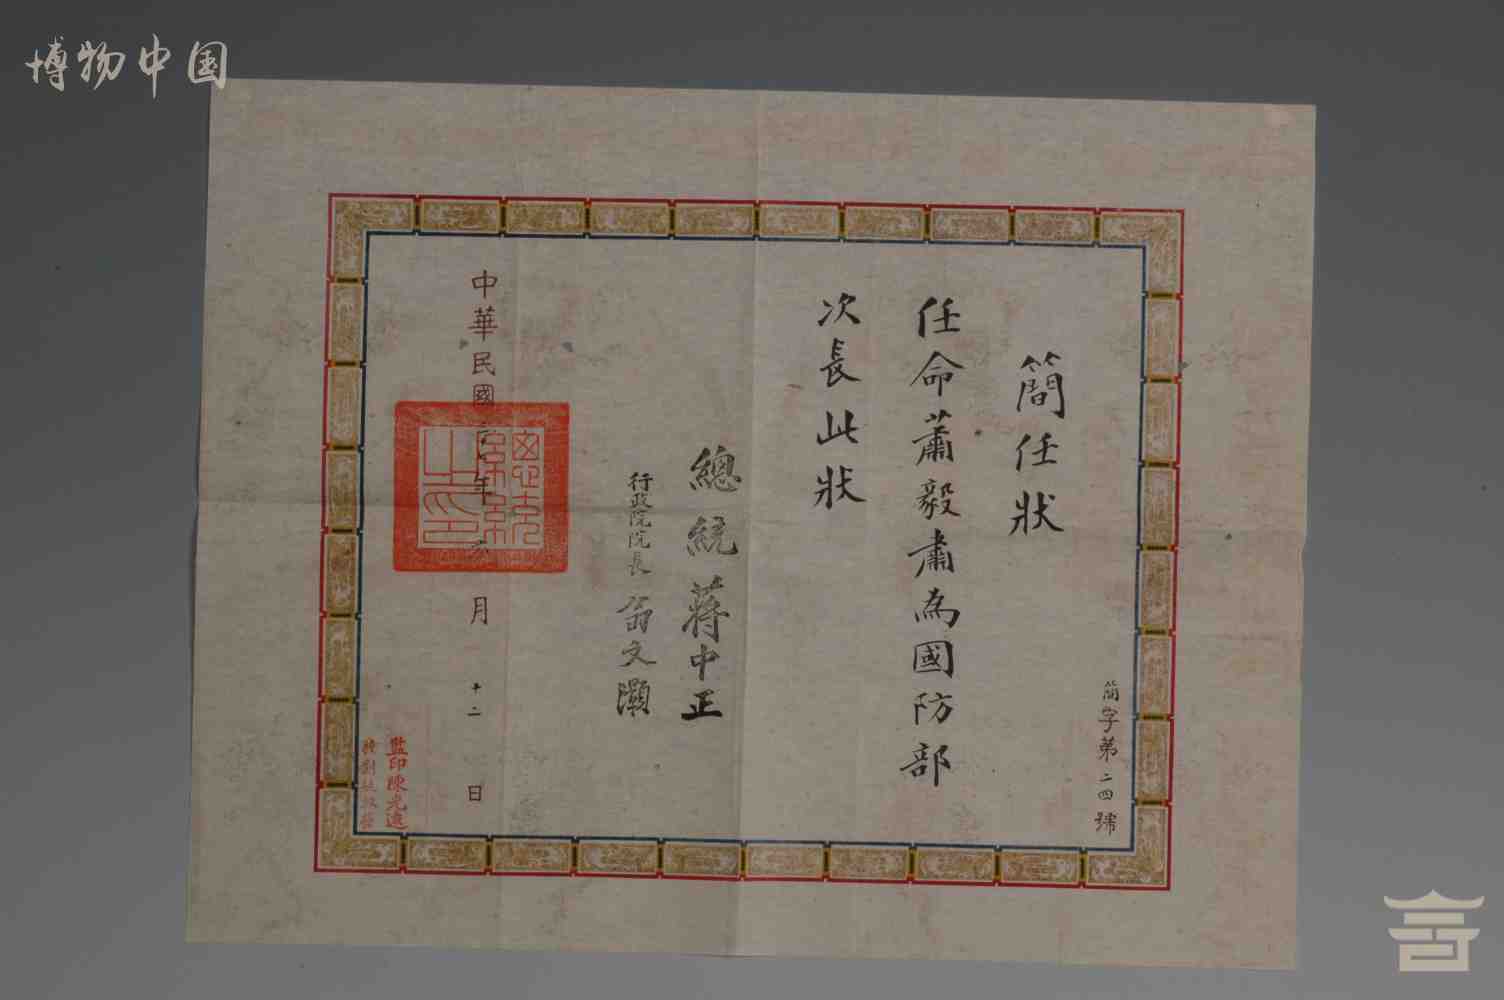 博物中国
簡字第二四號
簡任狀
任命蕭毅肅為國防部
次長此狀
總統蔣中正
行政院院長翁文灝
中華民國 年六月十二日
總統之印
監印陳光遠